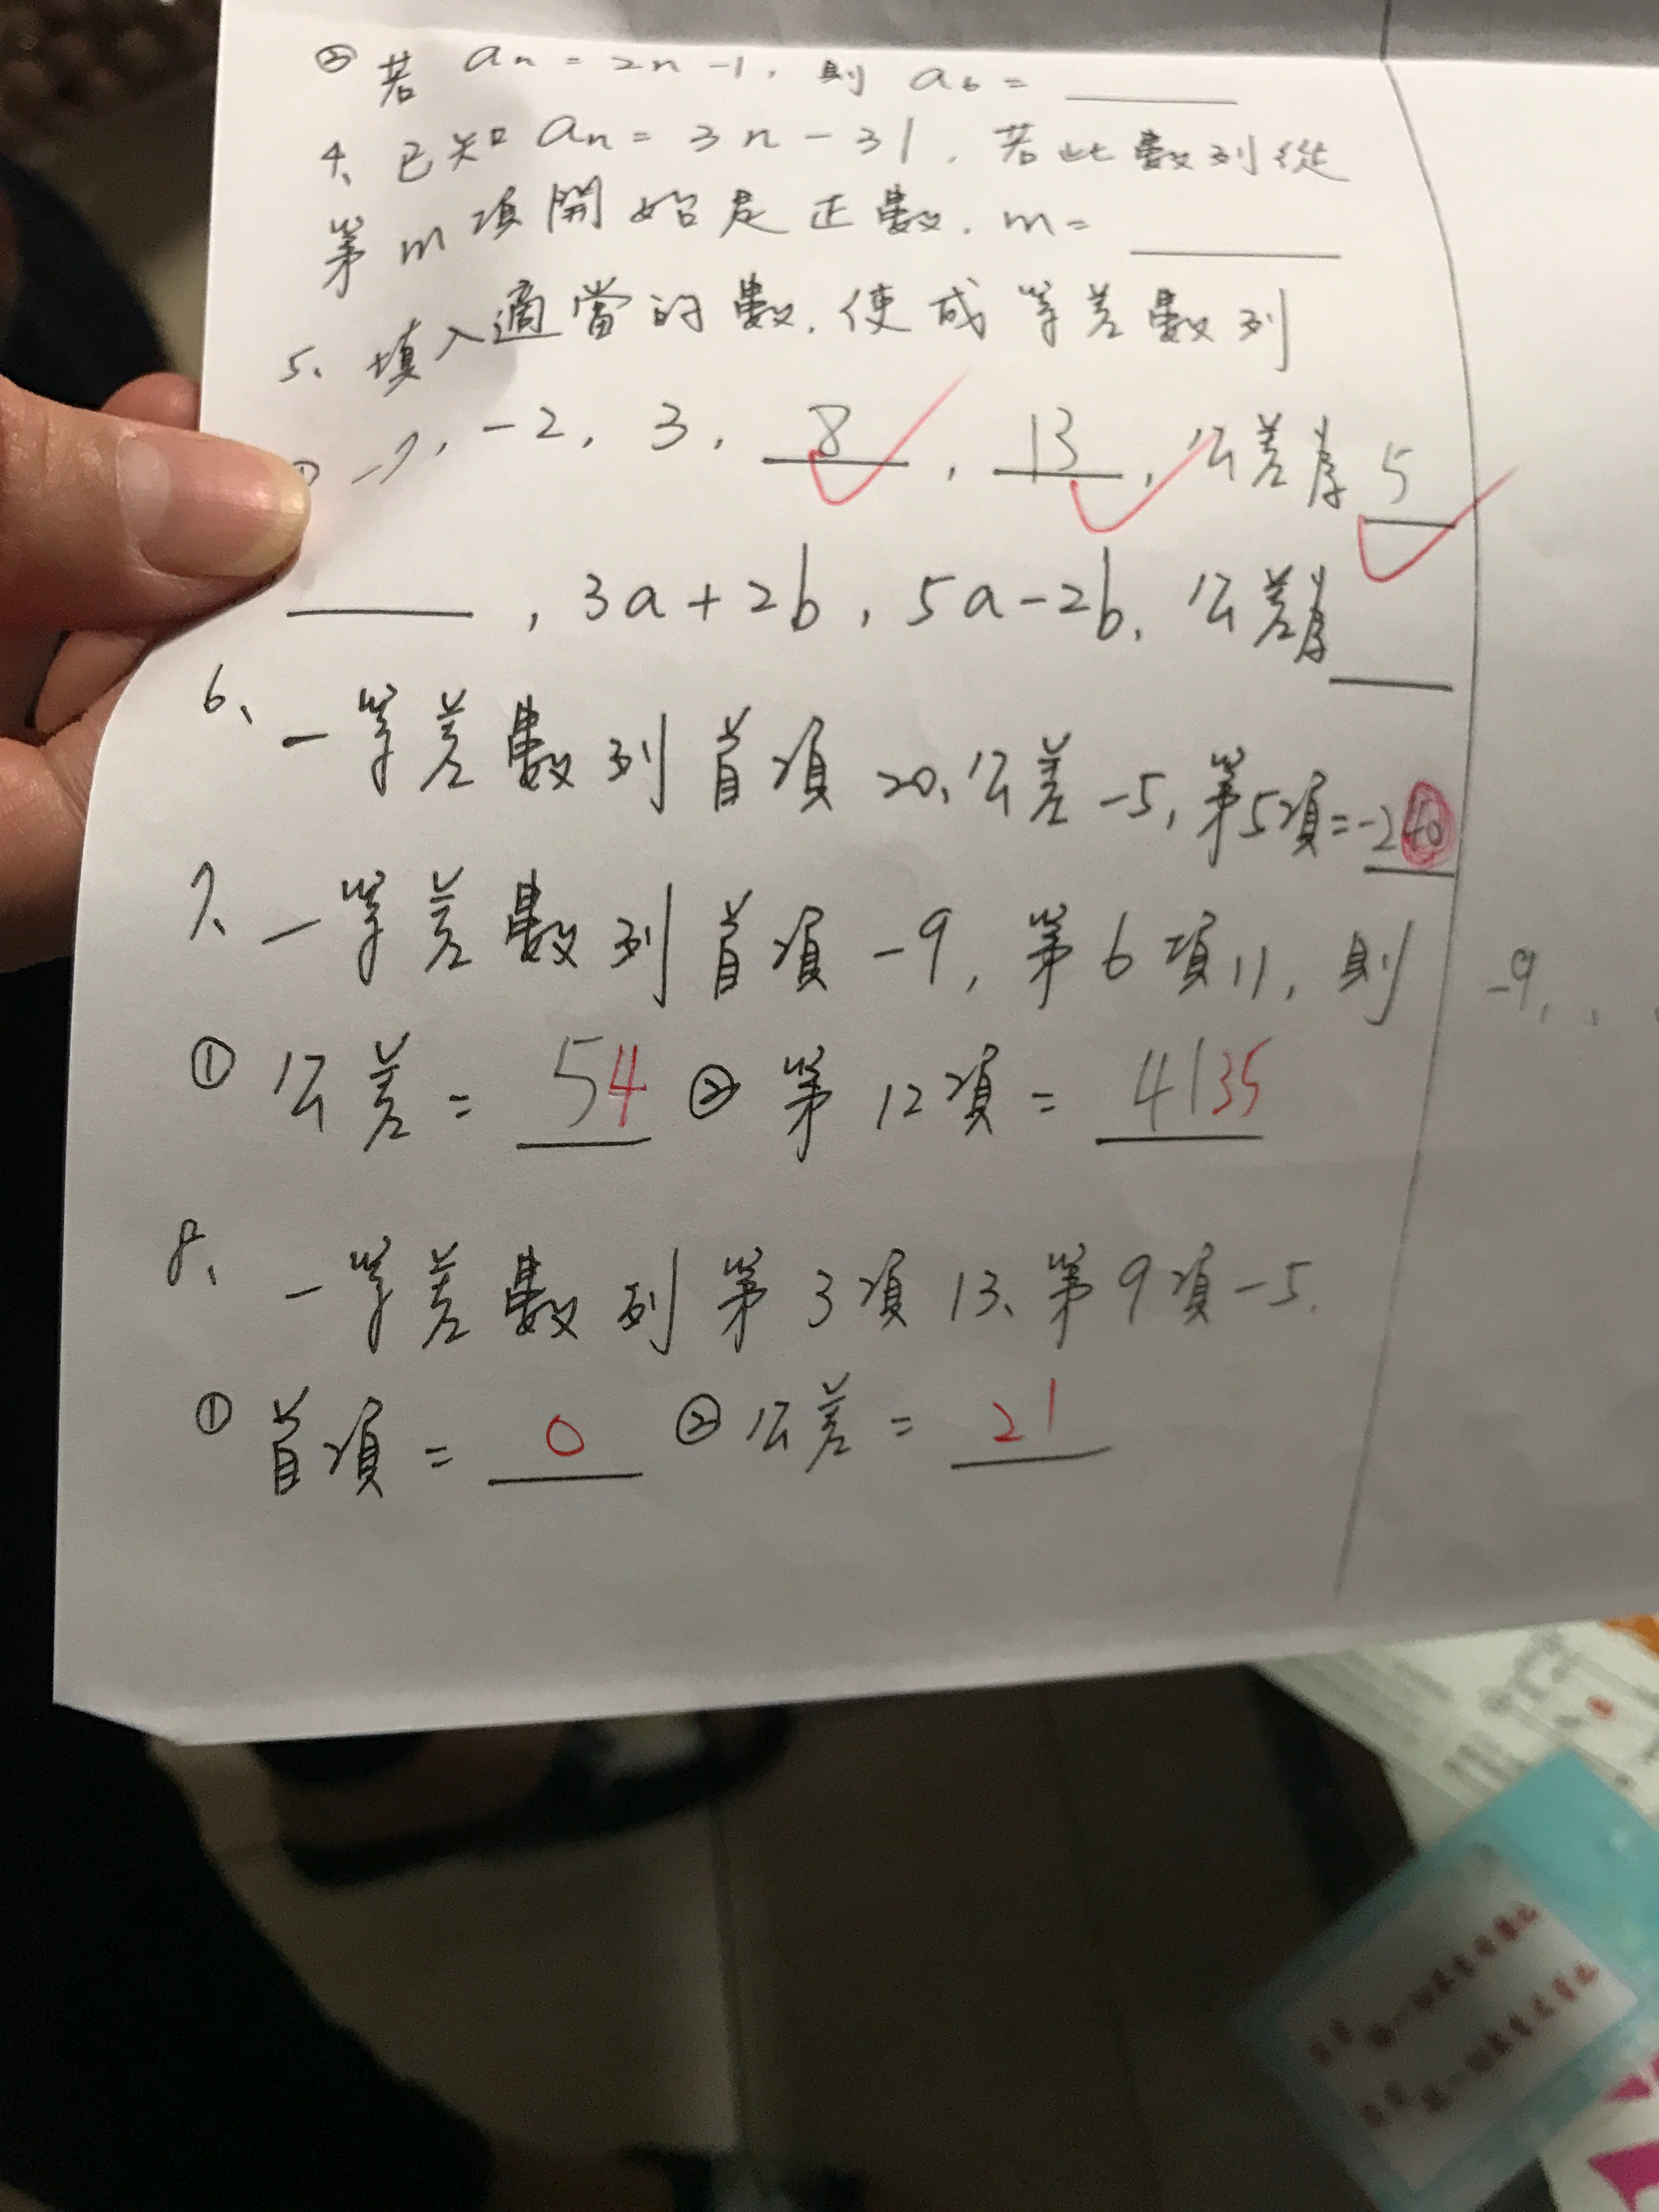 ② 若 aₙ = 2n - 1, 則 a₆ = ____
4、已知 aₙ = 3n - 31, 若此數列從
第 m 項開始是正數, m = ____
5、填入適當的數, 使成等差數列
-7, -2, 3, 8, 13, 公差為 5
____, 3a+2b, 5a-2b, 公差為 ____
6、一等差數列首項 20, 公差 -5, 第5項 = -2
7、一等差數列首項 -9, 第 6 項 11, 則 -9, , ,
① 公差 = 5 4 ② 第 12 項 = 41 35
8、一等差數列第 3 項 13、第 9 項 -5.
① 首項 = 0 ② 公差 = 21